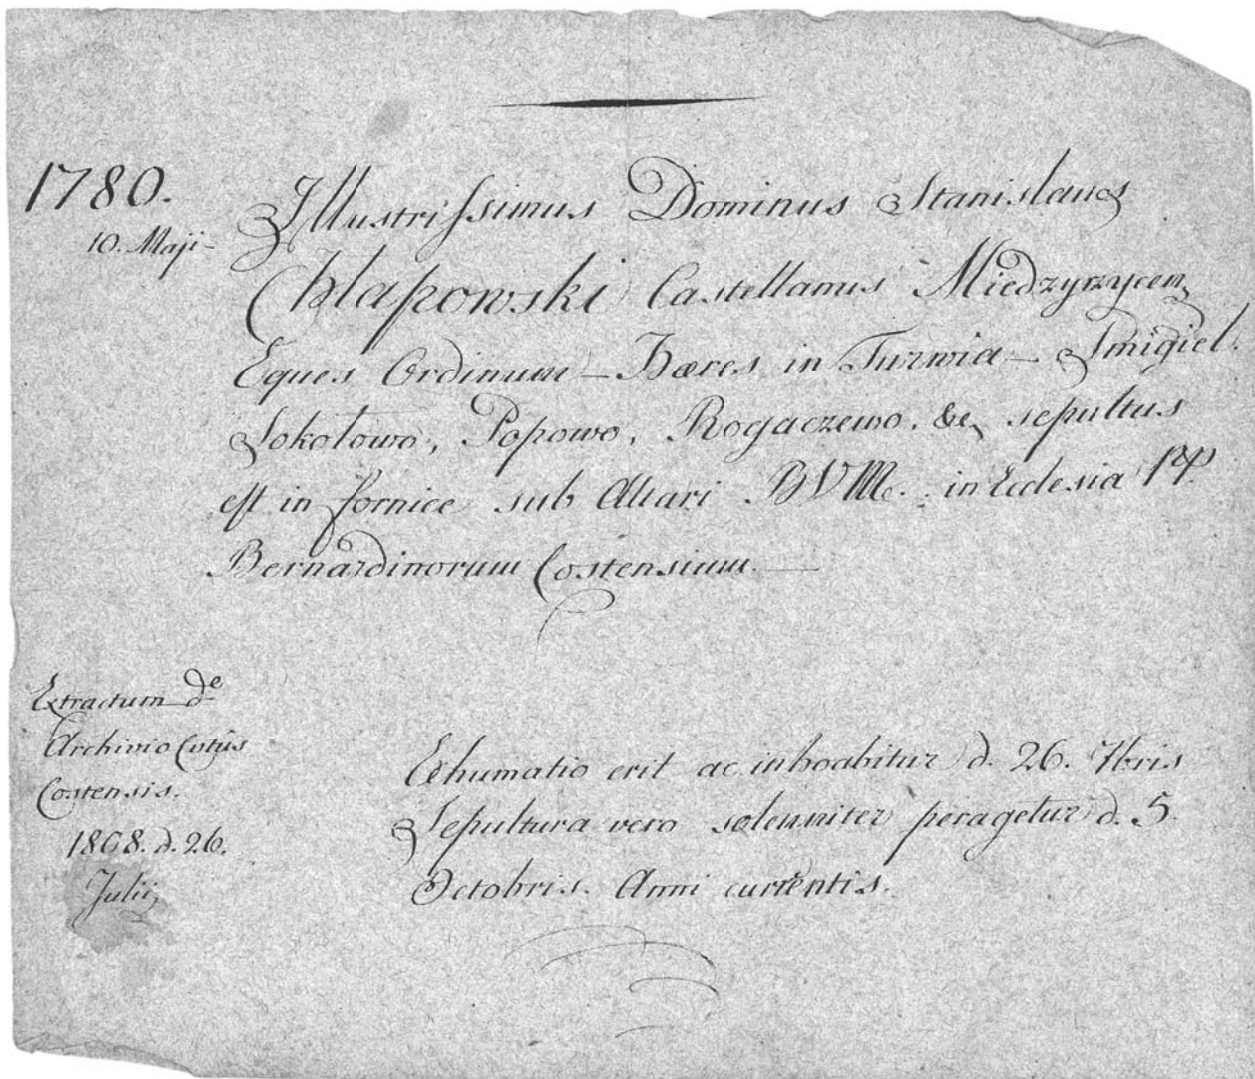 1780.
10. Maji -
Illustrissimus Dominus Stanislaus
Chłapowski Castellanus Miedzyrzycen,
Eques Ordinum - Hæres in Turwia - Smigiel.
Sokołowo, Popowo, Rogaczewo, &c, sepultus
est in fornice sub Altari BVM. in Ecclesia PP.
Bernardinorum Costensium. -
Extractum de
Archivio
Costensis.
1868. d. 26.
Julii,
Exhumatio erit ac inhoabitur d. 26. 7bris
Sepultura vero solenniter peragetur d. 5.
Octobris. Anni currentis.